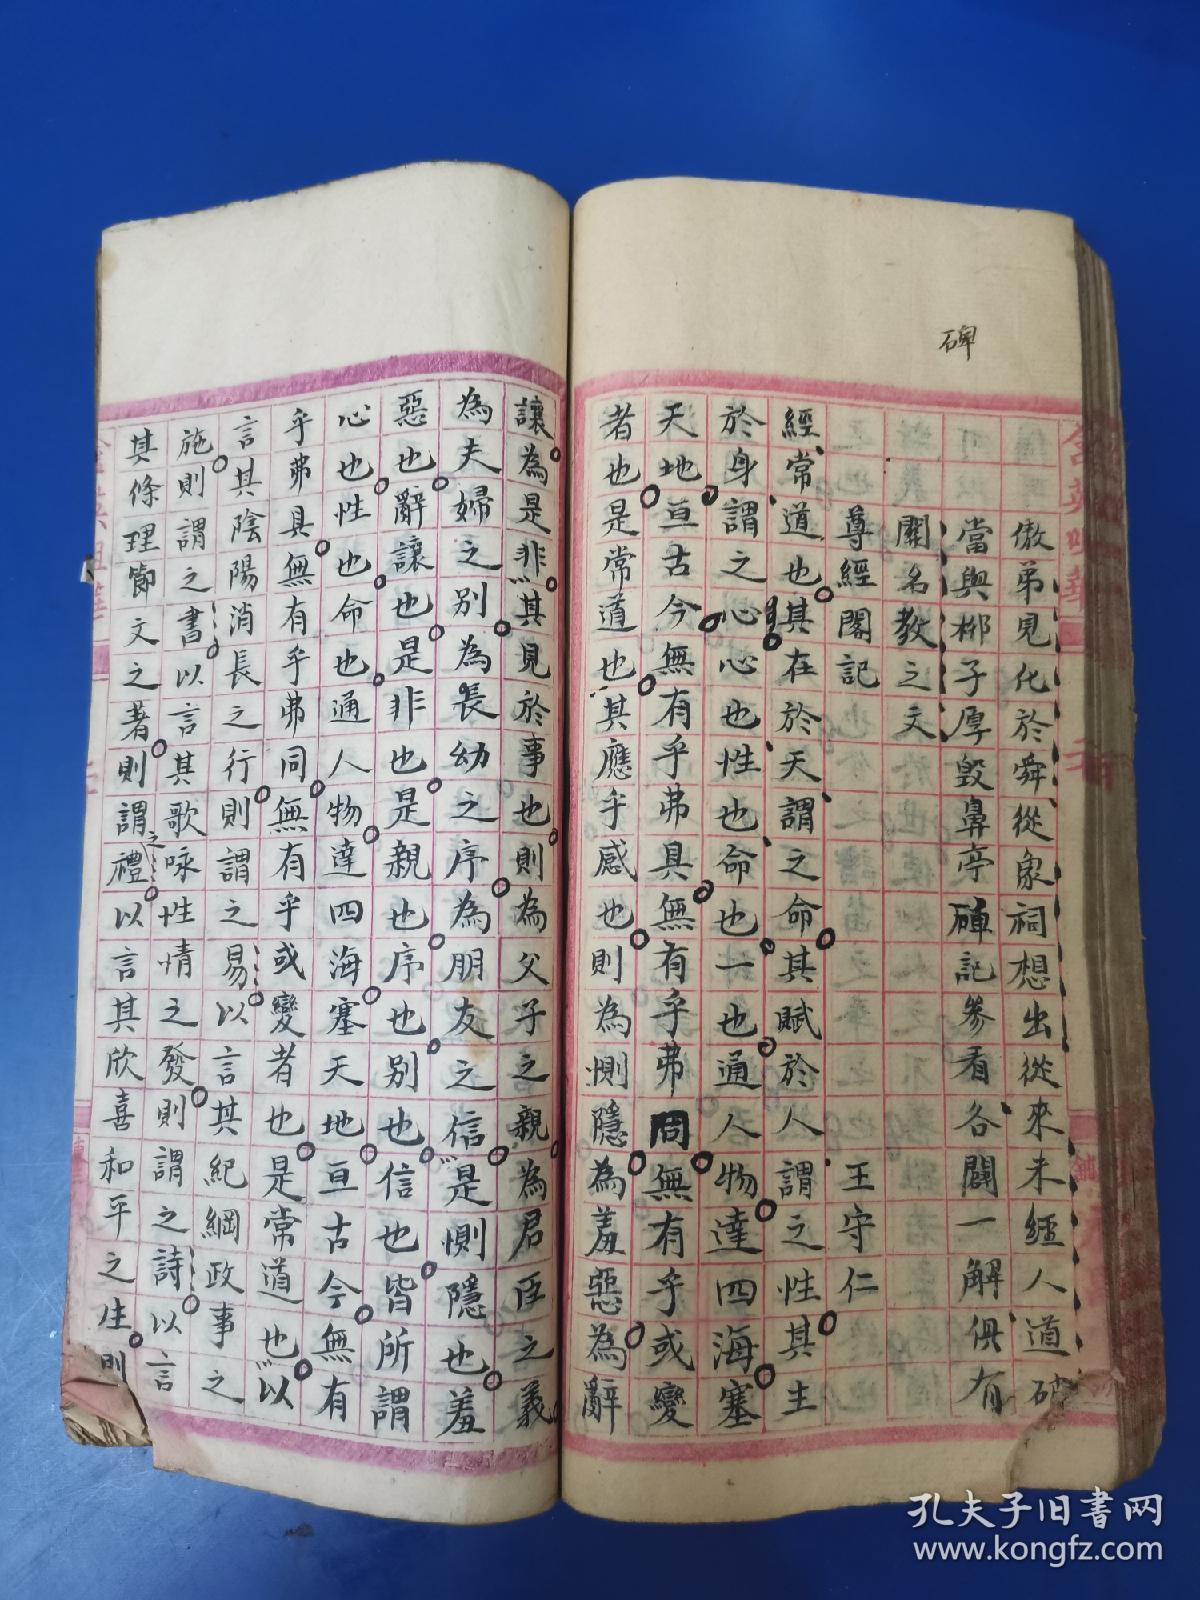 碑
傲弟見化於舜從象祠想出從來未經人道破
當與栁子厚毀鼻亭碑記參看各闢一解俱有
關名教之文
尊經閣記 王守仁
經常道也其在於天謂之命其賦於人謂之性其主
於身謂之心心也性也命也一也通人物達四海塞
天地亘古今無有乎弗具無有乎弗同無有乎或變
者也是常道也其應乎感也則為惻隱為羞惡為辭
讓為是非其見於事也則為父子之親為君臣之義
為夫婦之別為長幼之序為朋友之信是惻隱也羞
惡也辭讓也是非也是親也序也別也信也皆所謂
心也性也命也通人物達四海塞天地亘古今無有
乎弗具無有乎弗同無有乎或變者也是常道也以
言其陰陽消長之行則謂之易以言其紀綱政事之
施則謂之書以言其歌咏性情之發則謂之詩以言
其條理節文之著則謂之禮以言其欣喜和平之生則
孔夫子旧书网
www.kongfz.com